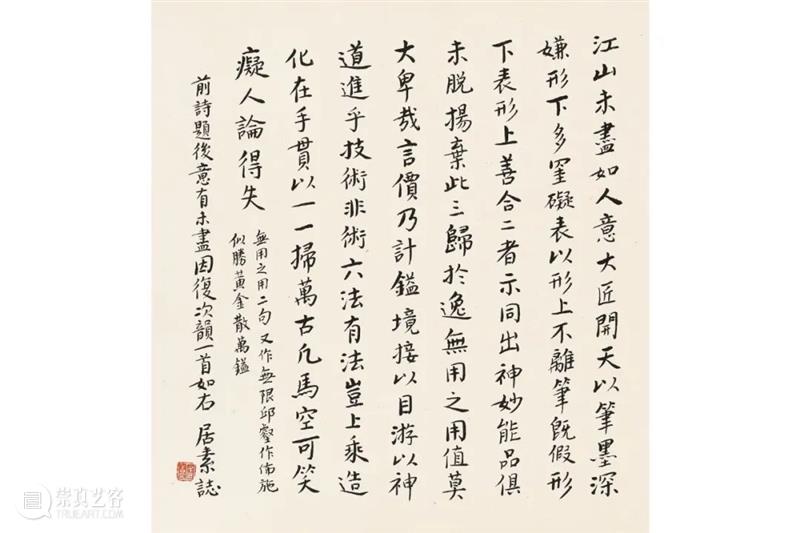 江山未盡如人意大匠開天以筆墨深
嫌形下多窒礙表以形上不離筆既假形
下表形上善合二者示同出神妙能品俱
未脫揚棄此三歸於逸無用之用值莫
大卑哉言價乃計鎰境接以目游以神
道進乎技術非術六法有法豈上乘造
化在手貫以一一掃萬古凡馬空可笑
癡人論得失
無用之用二句又作無限邱壑作佈施
似勝黃金散萬鎰
前詩題後意有未盡因復次韻一首如右 居素誌
崇真艺客
TRUEART.COM